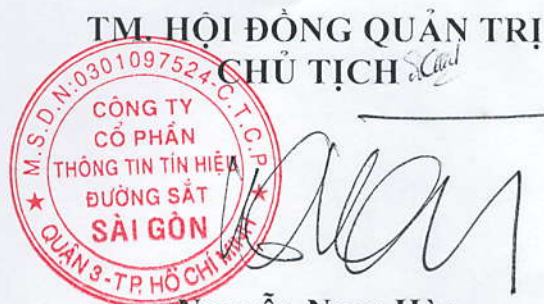 TM. HỘI ĐỒNG QUẢN TRỊ
CHỦ TỊCH
M.S.D.N:0301097524-C.T.C.P
CÔNG TY
CỔ PHẦN
THÔNG TIN TÍN HIỆU
ĐƯỜNG SẮT
SÀI GÒN
QUẬN 3-TP. HỒ CHÍ MINH